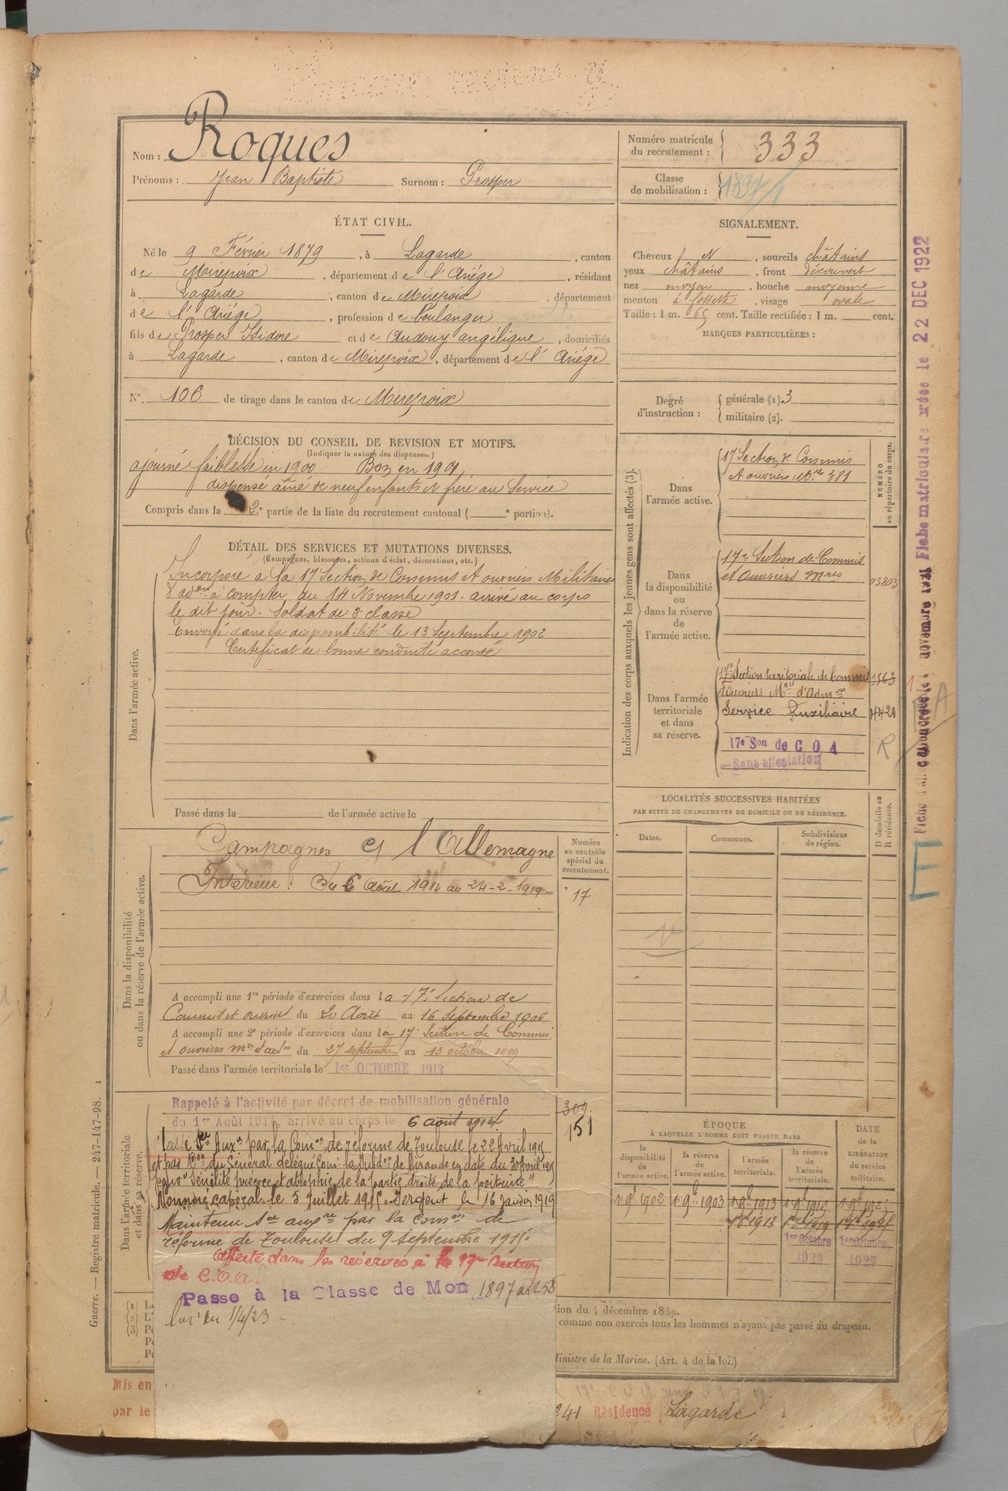 Nom : Roques
Prénoms : Jean Baptiste Surnom : Prosper
Numéro matricule du recrutement : 333
Classe de mobilisation : 1897/1
ÉTAT CIVIL.
Né le 9 Février 1879, à Lagarde, canton
de Mirepoix, département de l'Ariège, résidant
à Lagarde, canton de Mirepoix, département
de l'Ariège, profession de boulanger
fils de Prosper Isidore et de Audouy angélique, domiciliés
à Lagarde, canton de Mirepoix, département de l'Ariège
N° 106 de tirage dans le canton de Mirepoix
SIGNALEMENT.
Cheveux N, sourcils châtains
yeux châtains, front découvert
nez moyen, bouche moyenne
menton à fossette, visage ovale
Taille : 1 m. 65 cent. Taille rectifiée : 1 m. cent.
MARQUES PARTICULIÈRES :
Degré d'instruction : générale (1) 3
militaire (2).
DÉCISION DU CONSEIL DE REVISION ET MOTIFS.
(Indiquer la nature des dispenses.)
ajourné faiblesse en 1900 Bon en 1901
dispensé aîné de neuf enfants frère au Service
Compris dans la 2e partie de la liste du recrutement cantonal ( portion).
DÉTAIL DES SERVICES ET MUTATIONS DIVERSES.
(Campagnes, blessures, actions d'éclat, décorations, etc.)
Dans l'armée active.
Incorporé à la 17 Section de Commis et ouvriers Militaires
d'adon à compter du 14 Novembre 1901. arrivé au corps
le dit jour. Soldat de 2e classe
Envoyé dans la disponibilité le 13 Septembre 1902
Certificat de bonne conduite accordé
Passé dans la de l'armée active le
Indication des corps auxquels les jeunes gens sont affectés (3).
NUMÉRO au répertoire du corps.
Dans l'armée active.
17 Section de Commis
et ouvriers 381
Dans la disponibilité ou dans la réserve de l'armée active.
17e Section de Commis
et Ouvriers Mres
Dans l'armée territoriale et dans sa réserve.
17e Section territoriale de Commis
Service Auxiliaire
17e Son de C O A
Sans affectation
Dans la disponibilité ou dans la réserve de l'armée active.
Campagnes et l'Allemagne
Intérieur : Du 6 août 1914 au 24-2-1919
Numéro au contrôle spécial du recrutement.
17
A accompli une 1re période d'exercices dans la 17e Section de
Commis et ouvriers du 20 Août au 16 septembre 1906
A accompli une 2e période d'exercices dans la 17 Section de Commis
et ouvriers du 27 septembre au 13 octobre 1909
Passé dans l'armée territoriale le 1er OCTOBRE 1913
LOCALITÉS SUCCESSIVES HABITÉES
PAR SUITE DE CHANGEMENTS DE DOMICILE OU DE RÉSIDENCE.
Dates. Communes. Subdivisions de région. D domicile ou R résidence.
Dans l'armée territoriale et dans sa réserve.
Rappelé à l'activité par décret de mobilisation générale
du 1er Août 1914 arrivé au corps le 6 août 1914
Classé Ser Auxre par la Comon de réforme de Toulouse le 22 Avril 1915
et par Don du Général délégué Comt la Subdon de Mirande en date du 30 Avril 1915
pour "Sénilité précoce et atrophie de la partie droite de la poitrine"
Nommé caporal le 5 juillet 191 Sergent le 16 Janvier 1919
Maintenu Sce auxre par la Comon de
réforme de Toulouse du 9 Septembre 191
affecté dans les réserves à la 17e Section
de C.O.A.
Passe à la Classe de Mon 1897 art 58
loi du 1/4/23
309
151
ÉPOQUE
À LAQUELLE L'HOMME DOIT PASSER DANS
la disponibilité de l'armée active. la réserve de l'armée active. l'armée territoriale. la réserve de l'armée territoriale. DATE de la LIBÉRATION du service militaire.
1902 1903 1913
tion du 4 décembre 1889.
comme non exercés tous les hommes n'ayant pas passé au drapeau.
Ministre de la Marine. (Art. 4 de la loi.)
Mis en
par le
241 Résidence Lagarde
Guerre. — Registre matricule. — 247-147-98. 1
Fiche matriculaire créée le 22 DEC 1922